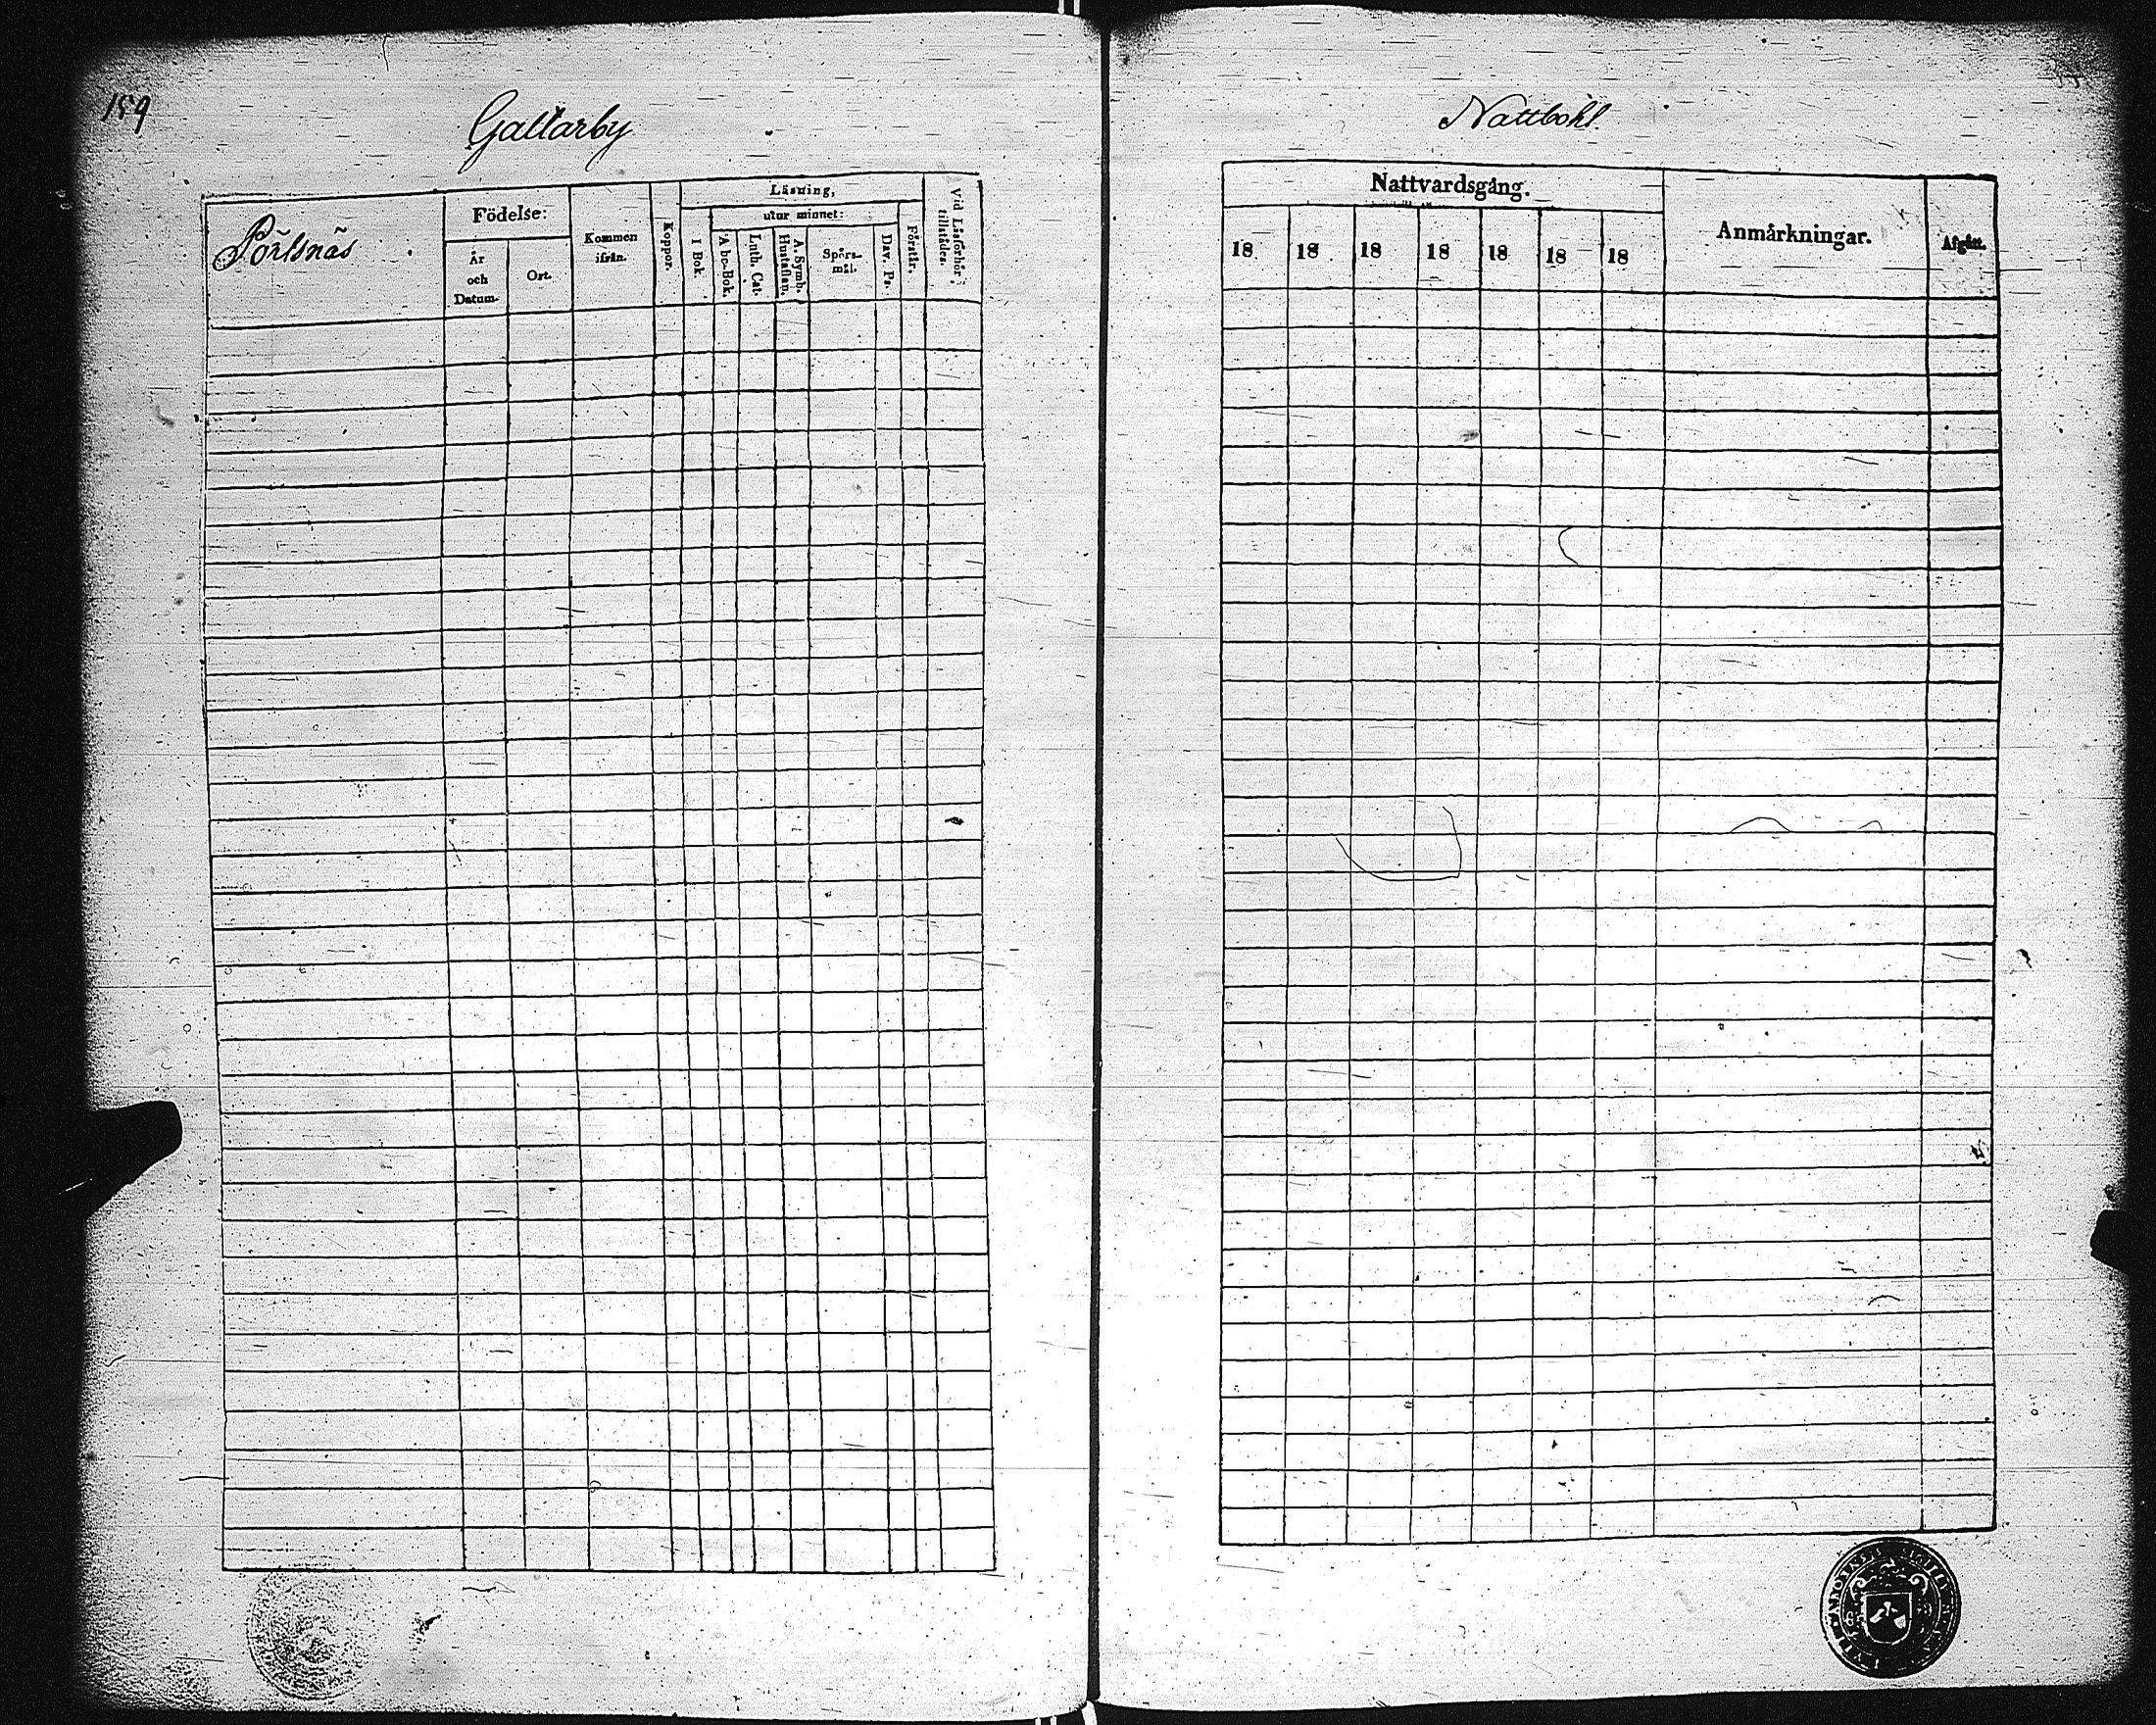 159
Gallarby
Pörtsnäs
Födelse:
År och Datum.
Ort.
Kommen ifrån.
Koppor.
Läsning,
utur minnet:
I Bok.
Abc-Bok.
Luth. Cat.
A. Symb. Hustaflan.
Spörs-mål.
Dav. Ps.
Förstår.
Vid Läsförhör tillstädes.
Nattbohl.
Nattvardsgång.
18 18 18 18 18 18 18
Anmärkningar.
Afgått.